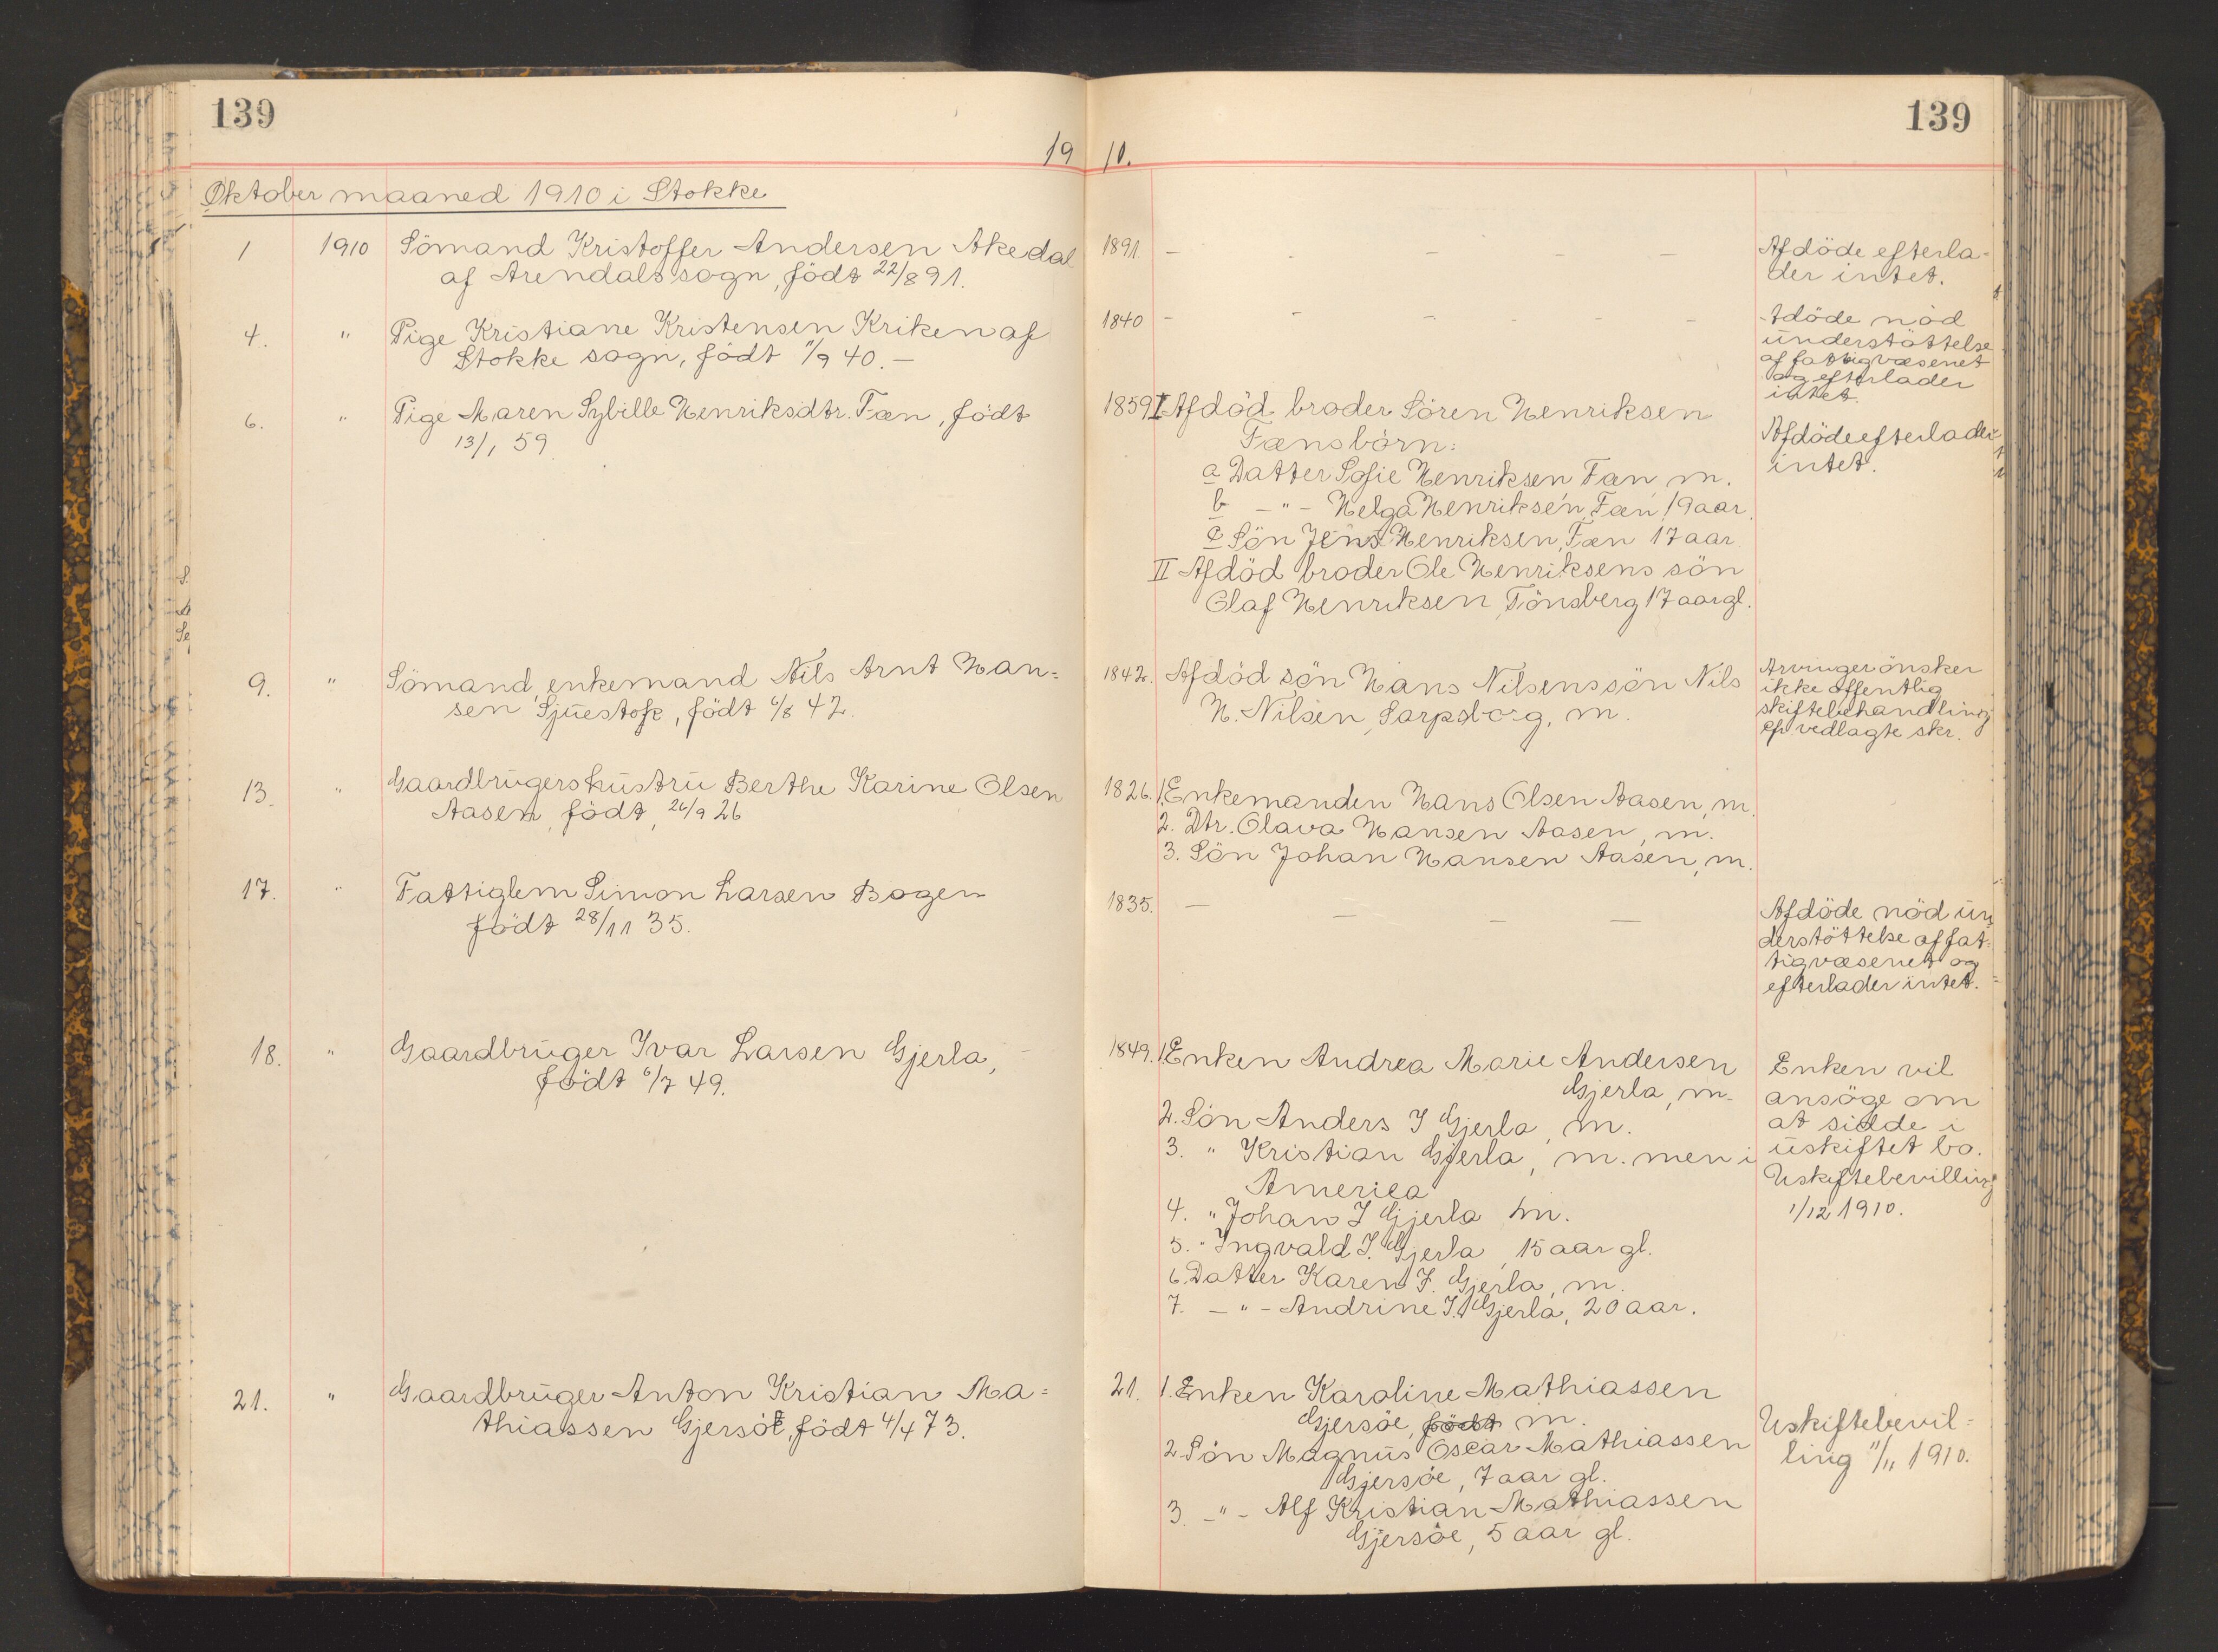 139
139
19 10.
Oktober maaned 1910 i Stokke
1 1910 Sömand Kristoffer Andersen Akedal
af Arendals sogn, födt 22/8 91.
1891. — - — - —
Afdöde efterla-
der intet.
4. " Pige Kristiane Kristensen Kriken af
Stokke sogn, födt 11/9 40. —
1840 - - - - - -
Adöde nöd
understöttelse
af fattigvæsenet
og efterlader
intet.
6. " Pige Maren Sybille Henriksdtr. Fæn, födt
13/1 59
1859 I Afdöd broder Sören Henriksen
Fæns börn:
a Datter Sofie Henriksen Fæn, m.
b - " - Helga Henriksen, Fæn, 19 aar.
c Sön Jens Henriksen, Fæn 17 aar.
II Afdöd broder Ole Henriksens sön
Olaf Henriksen, Tönsberg 17 aar gl.
Afdöde efterlader
intet.
9. " Sömand, enkemand Nils Arnt Han=
sen Sjuestok, födt 6/8 42.
1842. Afdöd sön Hans Nilsens sön Nils
H. Nilsen, Sarpsborg, m.
Arvinger önsker
ikke offentlig
skiftebehandling
vedlagte skr.
13. " Gaardbrugershustru Berthe Karine Olsen
Aasen, födt, 26/9 26
1826. 1. Enkemanden Hans Olsen Aasen, m.
2. Dtr. Olava Hansen Aasen, m.
3. Sön Johan Hansen Aasen, m.
17. " Fattiglem Simon Larsen Bogen
födt 28/11 35.
1835. — — — —
Afdöde nöd un
derstöttelse af fat=
tigvæsenet og
efterlader intet.
18. " Gaardbruger Ivar Larsen Gjerla,
födt 6/7 49.
1849. 1. Enken Andrea Marie Andersen
Gjerla, m.
2. Sön Anders I Gjerla, m.
3. " Kristian Gjerla, m. men i
America
4. " Johan I Gjerla m.
5. " Ingvald I. Gjerla, 15 aar gl.
6. Datter Karen I. Gjerla, m.
7. - " - Andrine I. Gjerla, 20 aar.
Enken vil
ansöge om
at sidde i
uskiftet bo.
Uskiftebevilling
1/12 1910.
21. " Gaardbruger Anton Kristian Ma=
thiassen Gjersöe, födt 4/4 73.
21. 1. Enken Karoline Mathiassen
Gjersöe, födt m.
2. Sön Magnus Oscar Mathiassen
Gjersöe, 7 aar gl.
3. - " - Alf Kristian Mathiassen
Gjersöe, 5 aar gl.
Uskiftebevil=
ling 11/11 1910.